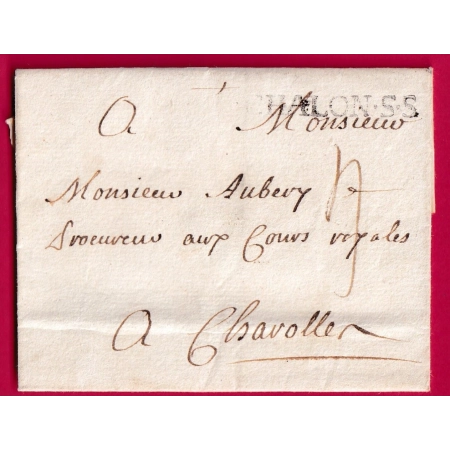 CHALON·S·S
A Monsieur
Monsieur Aubery
Procureur aux Cours royales
A Charolles